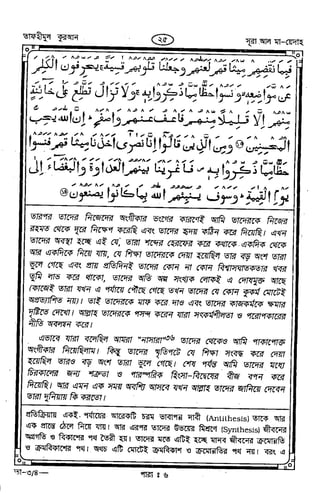 তাফহীমুল কুরআন
২৫
সূরা আল মা-য়েদাহ
فَبِمَا نَقْضِهِمْ مِّيثَاقَهُمْ لَعَنّٰهُمْ وَجَعَلْنَا قُلُوبَهُمْ قٰسِيَةً ۚ يُحَرِّفُونَ الْكَلِمَ
عَنْ مَّوَاضِعِهٖ ۙ وَنَسُوا حَظًّا مِّمَّا ذُكِّرُوا بِهٖ ۚ وَلَا تَزَالُ تَطَّلِعُ عَلٰى خَآئِنَةٍ
مِّنْهُمْ إِلَّا قَلِيلًا مِّنْهُمْ فَاعْفُ عَنْهُمْ وَاصْفَحْ ۚ إِنَّ اللّٰهَ يُحِبُّ
الْمُحْسِنِينَ وَمِنَ الَّذِينَ قَالُوٓا إِنَّا نَصٰرٰٓى أَخَذْنَا مِيثَاقَهُمْ فَنَسُوا
حَظًّا مِّمَّا ذُكِّرُوا بِهٖ ۪ فَأَغْرَيْنَا بَيْنَهُمُ الْعَدَاوَةَ وَالْبَغْضَآءَ إِلٰى
يَوْمِ الْقِيٰمَةِ ۚ وَسَوْفَ يُنَبِّئُهُمُ اللّٰهُ بِمَا كَانُوا يَصْنَعُونَ
তারপর তাদের নিজেদের অংগীকার ভংগের কারণেই আমি তাদেরকে নিজের
রহমত থেকে দূরে নিক্ষেপ করেছি এবং তাদের হৃদয় কঠিন করে দিয়েছি। এখন
তাদের অবস্থা হচ্ছে এই যে, তারা শব্দের হেরফের করে কথাকে একদিক থেকে
আর একদিকে নিয়ে যায়, যে শিক্ষা তাদেরকে দেয়া হয়েছিল তার বড় অংশ তারা
ভুলে গেছে এবং প্রায় প্রতিদিনই তাদের কোন না কোন বিশ্বাসঘাতকতার খবর
তুমি লাভ করে থাকো, তাদের অতি অল্প সংখ্যক লোকই এ দোষমুক্ত আছে
(কাজেই তারা যখন এ পর্যায়ে পৌঁছে গেছে তখন তাদের যে কোন কুকর্ম মোটেই
অপ্রত্যাশিত নয়)। তাই তাদেরকে মাফ করে দাও এবং তাদের কাজকর্মকে ক্ষমার
দৃষ্টিতে দেখো। আল্লাহ তাদেরকে পসন্দ করেন যারা সৎকর্মশীলতা ও পরোপকারের
নীতি অবলম্বন করে।
এভাবে যারা বলেছিল আমরা "নাসারা" তাদের থেকেও আমি পাকাপোক্ত
অংগীকার নিয়েছিলাম। কিন্তু তাদের স্মৃতিপটে যে শিক্ষা সংবদ্ধ করে দেয়া
হয়েছিল তারও বড় অংশ তারা ভুলে গেছে। শেষ পর্যন্ত আমি তাদের মধ্যে
চিরকালের জন্য শত্রুতা ও পারস্পরিক হিংসা-বিদ্বেষের বীজ বপন করে
দিয়েছি। আর এমন এক সময় অবশ্যি আসবে যখন আল্লাহ তাদের জানিয়ে দেবেন
তারা দুনিয়ায় কি করতো।
প্রতিক্রিয়ায় একই পর্যায়ের আরেকটি চরম ভাবাপন্ন দাবী (Antithesis) তাকে আর
এক প্রান্তে ঠেলে নিয়ে যায়। আর এরপর তাদের উভয়ের মিশ্রণে (Synthesis) জীবনের
অগ্রগতি ও বিকাশের পথ তৈরী হয়। তাদের মতে এটিই হচ্ছে মানব জীবনের ক্রমোন্নতি
ও ক্রমবিকাশের পথ। অথচ এটি মোটেই ক্রমবিকাশ ও ক্রমোন্নতির পথ নয়। বরং এ
তা-৩/৪
পারা : ৬